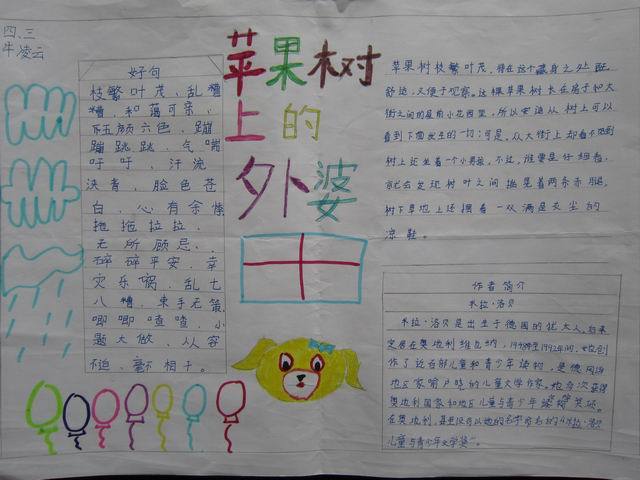 四、三
牛凌云
好句
枝繁叶茂、乱糟
糟、和蔼可亲、
五颜六色、蹦
蹦跳跳、气喘
吁吁、汗流
浃背、脸色苍
白、心有余悸
拖拖拉拉、
无所顾忌、
碎碎平安、幸
灾乐祸、乱七
八糟、束手无策
唧唧喳喳、小
题大做、从容
不迫、毫不相干。
苹果树
上的
外婆
苹果树枝繁叶茂，待在这个藏身之处既
舒适，又便于观察。这棵苹果树长在房子和大
街之间的屋前小花园里，所以安迪从树上可以
看到下面发生的一切；可是，从大街上却看不到
树上还坐着一个小男孩。不过，谁要是仔细看，
就会发现树叶之间摇晃着两条赤腿，
树下草地上还摆着一双满是灰尘的
凉鞋。
作者简介
米拉·洛贝
米拉·洛贝是出生于德国的犹太人，后来
定居在奥地利维也纳，1948年至1992年间，她创
作了近百部儿童和青少年读物，是德国
地区家喻户晓的儿童文学作家。她多次获得
奥地利国家和地区儿童与青少年读物奖项。
在奥地利，甚至设有以她的名字命名的“米拉·洛贝
儿童与青少年文学奖”。